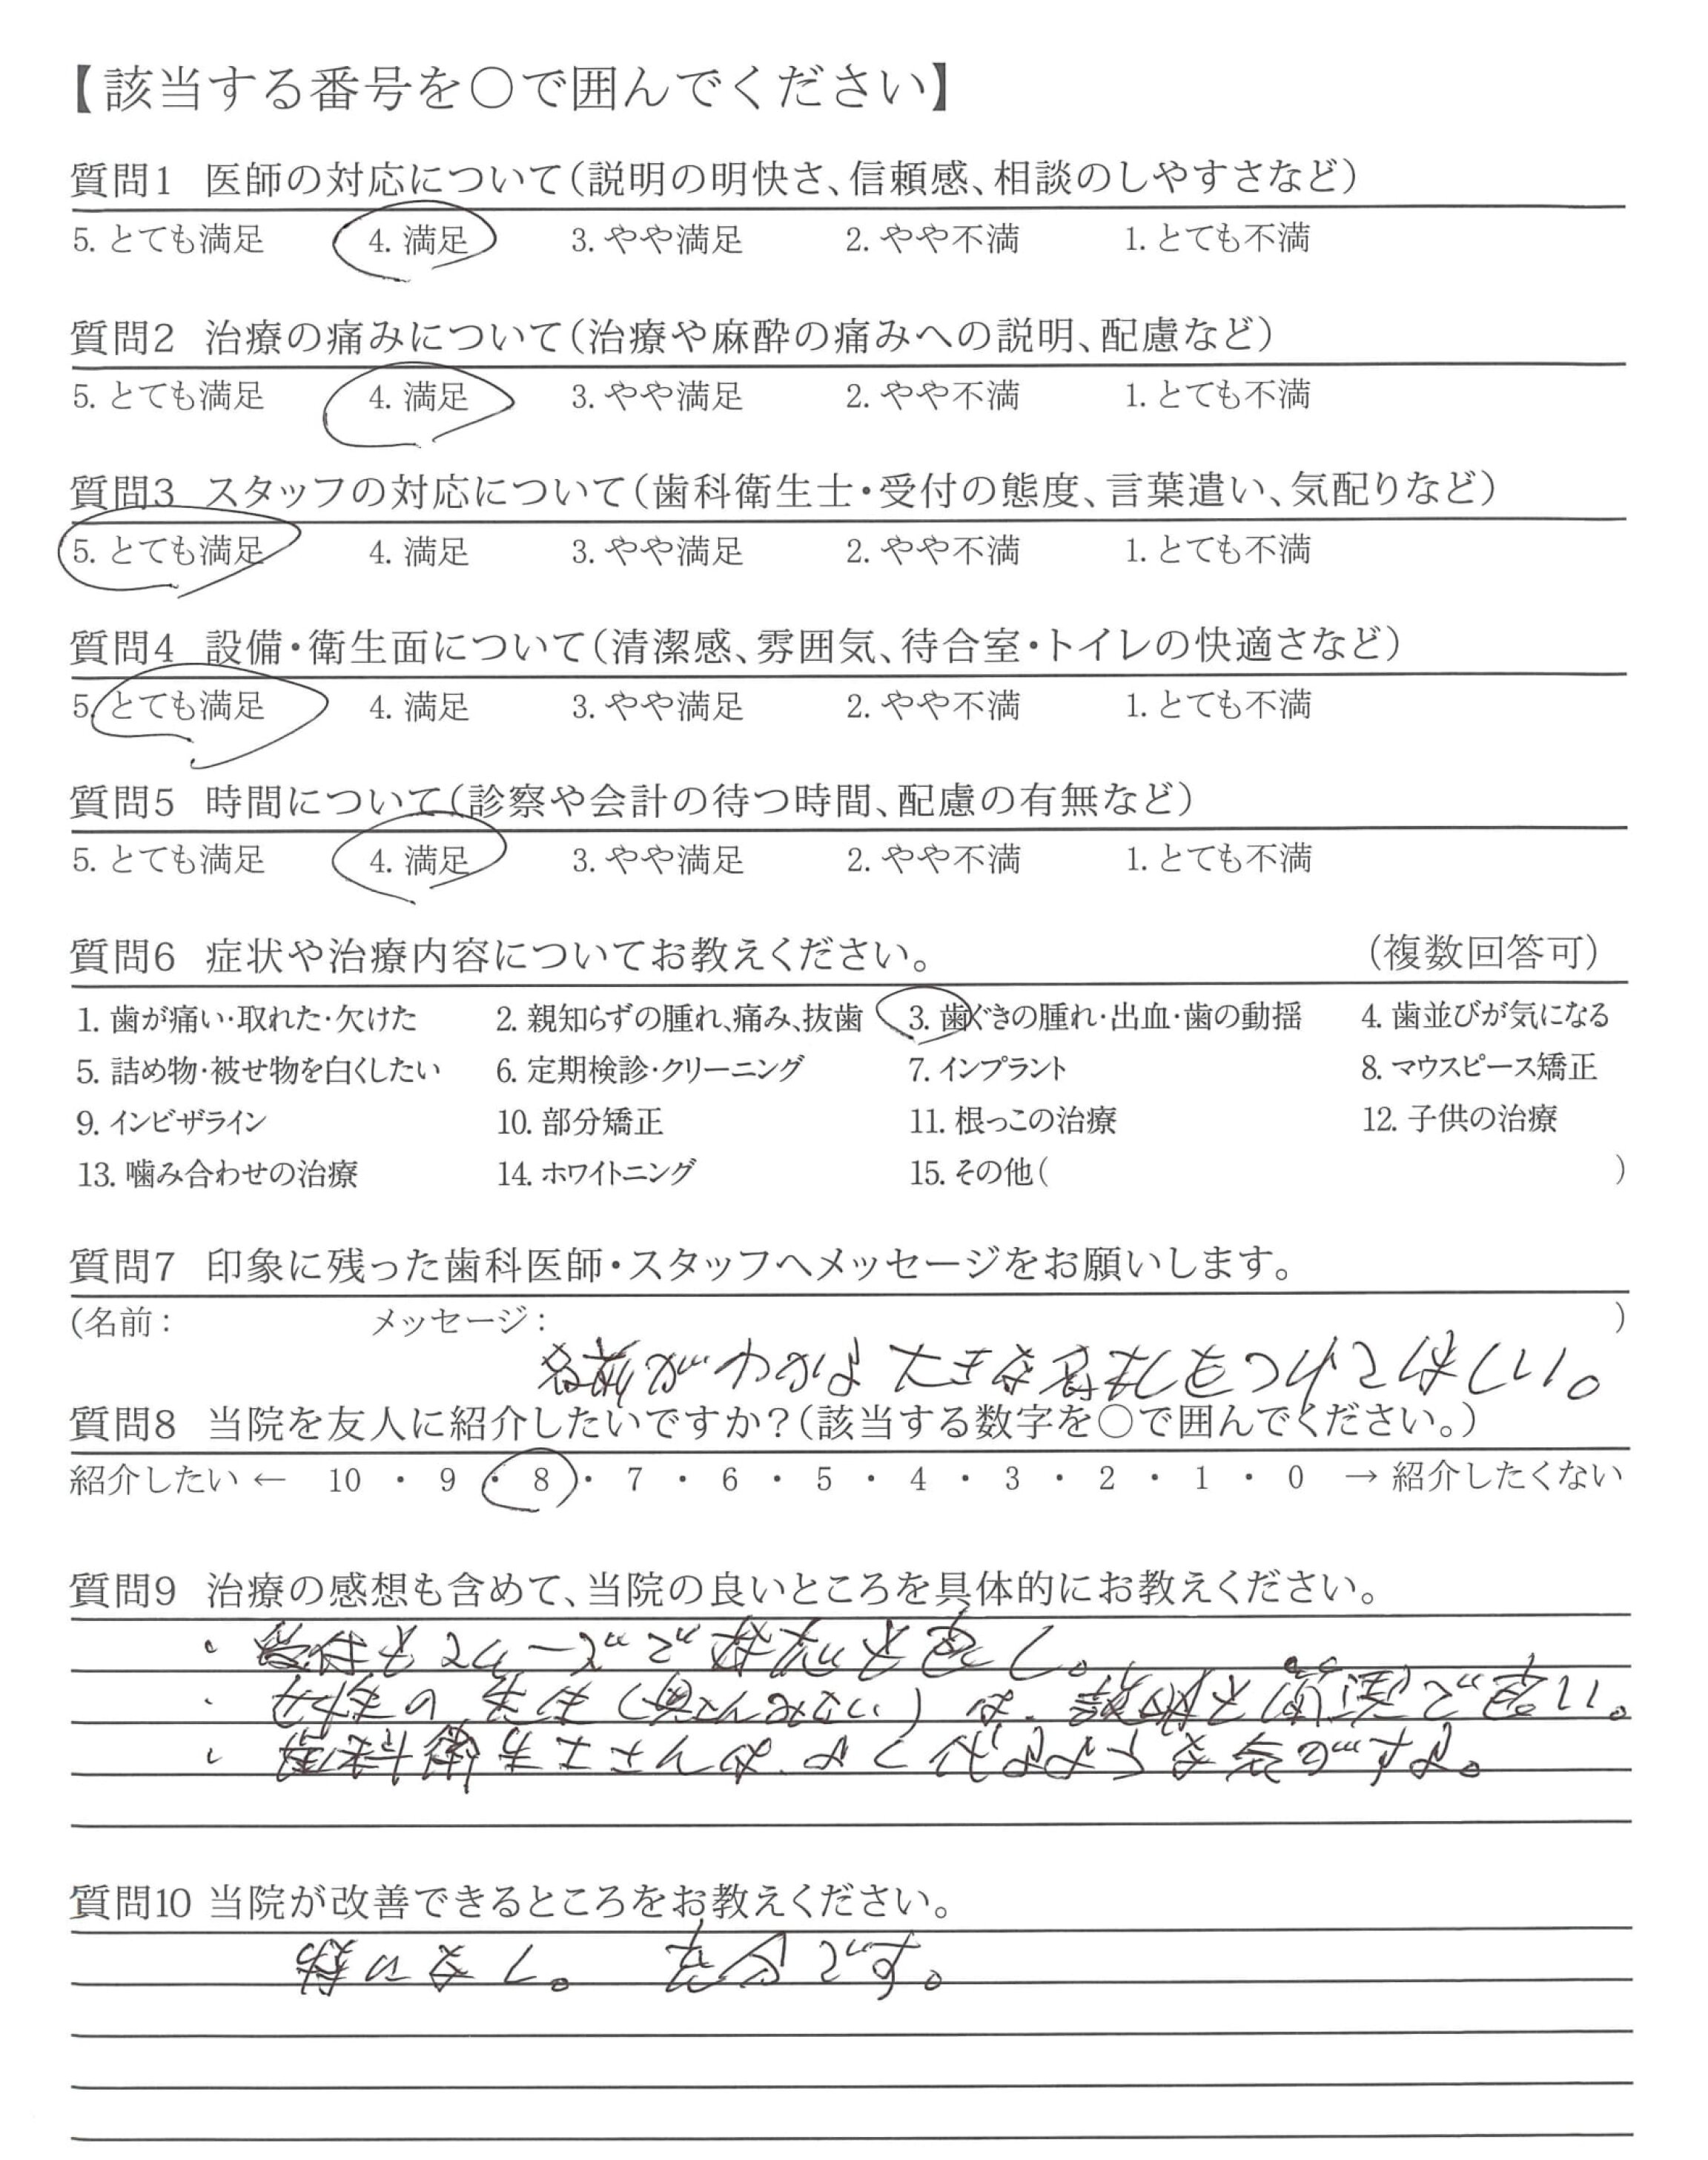 【該当する番号を○で囲んでください】
質問1 医師の対応について(説明の明快さ、信頼感、相談のしやすさなど)
5. とても満足 4. 満足 3. やや満足 2. やや不満 1. とても不満
質問2 治療の痛みについて(治療や麻酔の痛みへの説明、配慮など)
5. とても満足 4. 満足 3. やや満足 2. やや不満 1. とても不満
質問3 スタッフの対応について(歯科衛生士・受付の態度、言葉遣い、気配りなど)
5. とても満足 4. 満足 3. やや満足 2. やや不満 1. とても不満
質問4 設備・衛生面について(清潔感、雰囲気、待合室・トイレの快適さなど)
5. とても満足 4. 満足 3. やや満足 2. やや不満 1. とても不満
質問5 時間について(診察や会計の待つ時間、配慮の有無など)
5. とても満足 4. 満足 3. やや満足 2. やや不満 1. とても不満
質問6 症状や治療内容についてお教えください。 (複数回答可)
1. 歯が痛い・取れた・欠けた 2. 親知らずの腫れ、痛み、抜歯 3. 歯ぐきの腫れ・出血・歯の動揺 4. 歯並びが気になる
5. 詰め物・被せ物を白くしたい 6. 定期検診・クリーニング 7. インプラント 8. マウスピース矯正
9. インビザライン 10. 部分矯正 11. 根っこの治療 12. 子供の治療
13. 噛み合わせの治療 14. ホワイトニング 15. その他( )
質問7 印象に残った歯科医師・スタッフへメッセージをお願いします。
(名前: メッセージ: )
名前がわかる大きな名札をつけてほしい。
質問8 当院を友人に紹介したいですか?(該当する数字を○で囲んでください。)
紹介したい ← 10 ・ 9 ・ 8 ・ 7 ・ 6 ・ 5 ・ 4 ・ 3 ・ 2 ・ 1 ・ 0 → 紹介したくない
質問9 治療の感想も含めて、当院の良いところを具体的にお教えください。
・受付もスムーズで対応も良し。
・女性の先生は、説明も で良い。
・歯科衛生士さんは、
質問10 当院が改善できるところをお教えください。
特になし。 充分です。